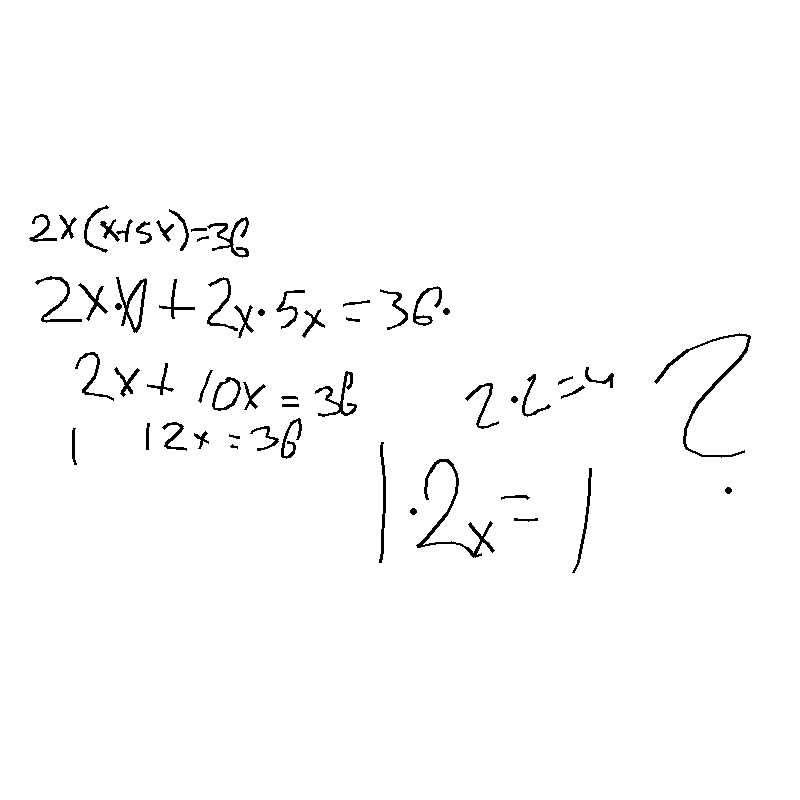 2x(x+5x)=36
2x·x+2x·5x=36.
2x+10x=36
1 12x=36
2·2=4
1·2x=1
?